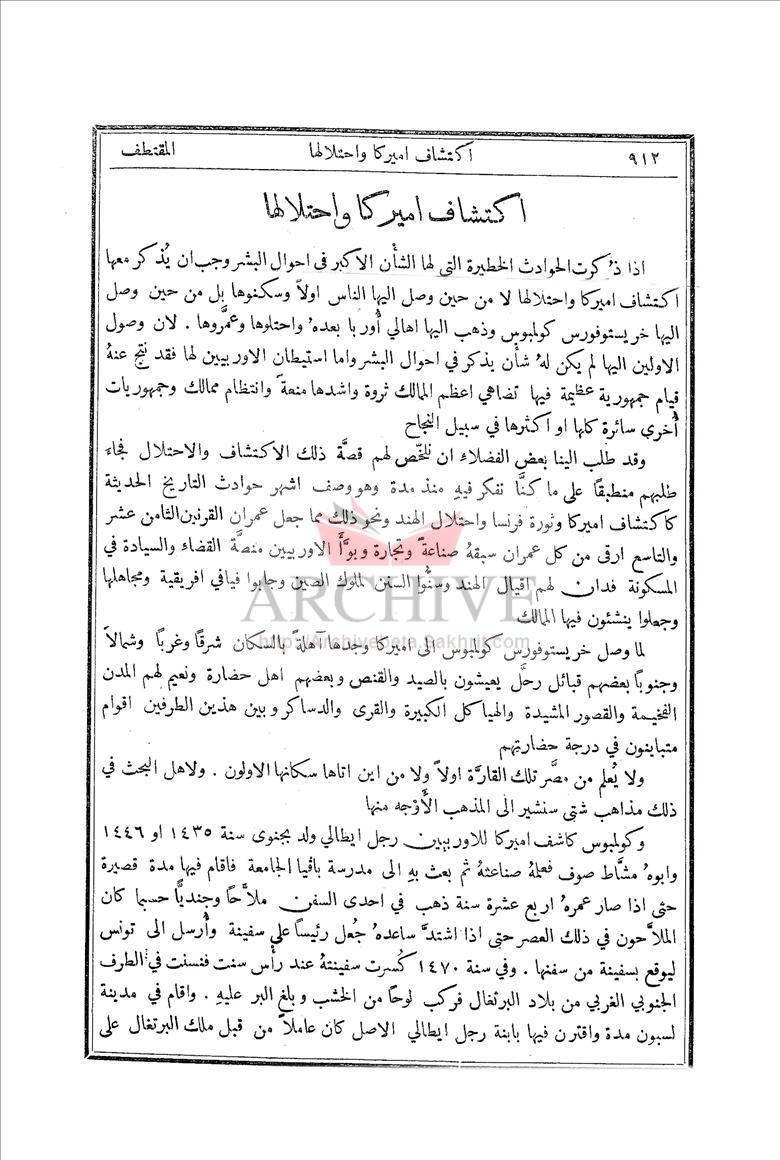 ٩١٢ اكتشاف اميركا واحتلالها المقتطف
اكتشاف اميركا واحتلالها
اذا ذُكرت الحوادث الخطيرة التي لها الشأن الاكبر في احوال البشر وجب ان يُذكر معها
اكتشاف اميركا واحتلالها لا من حين وصل اليها الناس اولاً وسكنوها بل من حين وصل
اليها خريستوفورس كولمبوس وذهب اليها اهالي أوربا بعدهُ واحتلوها وعمَّروها . لان وصول
الاولين اليها لم يكن لهُ شأن يذكر في احوال البشر واما استيطان الاوربيين لها فقد نتج عنهُ
قيام جمهورية عظيمة فيها تضاهي اعظم الممالك ثروة واشدها منعةً وانتظام ممالك وجمهوريات
أخرى سائرة كلها او اكثرها في سبيل النجاح
وقد طلب الينا بعض الفضلاء ان نلخّص لهم قصَّة ذلك الاكتشاف والاحتلال فجاءَ
طلبهم منطبقاً على ما كنَّا نفكر فيهِ منذ مدة وهو وصف اشهر حوادث التاريخ الحديثة
كاكتشاف اميركا وثورة فرنسا واحتلال الهند ونحو ذلك مما جعل عمران القرنين الثامن عشر
والتاسع ارقى من كل عمران سبقهُ صناعةً وتجارة وبوَّأَ الاوربيين منصَّة القضاء والسيادة في
المسكونة فدان لهم اقيال الهند وسنُّوا السنن لملوك الصين وجابوا فيافي افريقية ومجاهلها
وجعلوا ينشئون فيها الممالك
ARCHIVE
http://Archivebeta.Sakhrit.com
لما وصل خريستوفورس كولمبوس الى اميركا وجدها آهلةً بالسكان شرقاً وغرباً وشمالاً
وجنوباً بعضهم قبائل رحَّل يعيشون بالصيد والقنص وبعضهم اهل حضارة ونعيم لهم المدن
الفخيمة والقصور المشيدة والهياكل الكبيرة والقرى والدساكر وبين هذين الطرفين اقوام
متباينون في درجة حضارتهم
ولا يُعلم من مصَّر تلك القارَّة اولاً ولا من اين اتاها سكانها الاولون . ولاهل البحث في
ذلك مذاهب شتى سنشير الى المذهب الأَوْجه منها
وكولمبوس كاشف اميركا للاوربيين رجل ايطالي ولد بجنوى سنة ١٤٣٥ او ١٤٤٦
وابوهُ مشَّاط صوف فعلمهُ صناعتهُ ثم بعث بهِ الى مدرسة باڤيا الجامعة فاقام فيها مدة قصيرة
حتى اذا صار عمرهُ اربع عشرة سنة ذهب في احدى السفن ملاَّحاً وجنديًّا حسبما كان
الملاَّحون في ذلك العصر حتى اذا اشتدَّ ساعدهُ جُعل رئيساً على سفينة وأُرسل الى تونس
ليوقع بسفينة من سفنها . وفي سنة ١٤٧٠ كُسرت سفينتهُ عند رأْس سنت فنسنت في الطرف
الجنوبي الغربي من بلاد البرتغال فركب لوحاً من الخشب وبلغ البر عليهِ . واقام في مدينة
لسبون مدة واقترن فيها بابنة رجل ايطالي الاصل كان عاملاً من قبل ملك البرتغال على